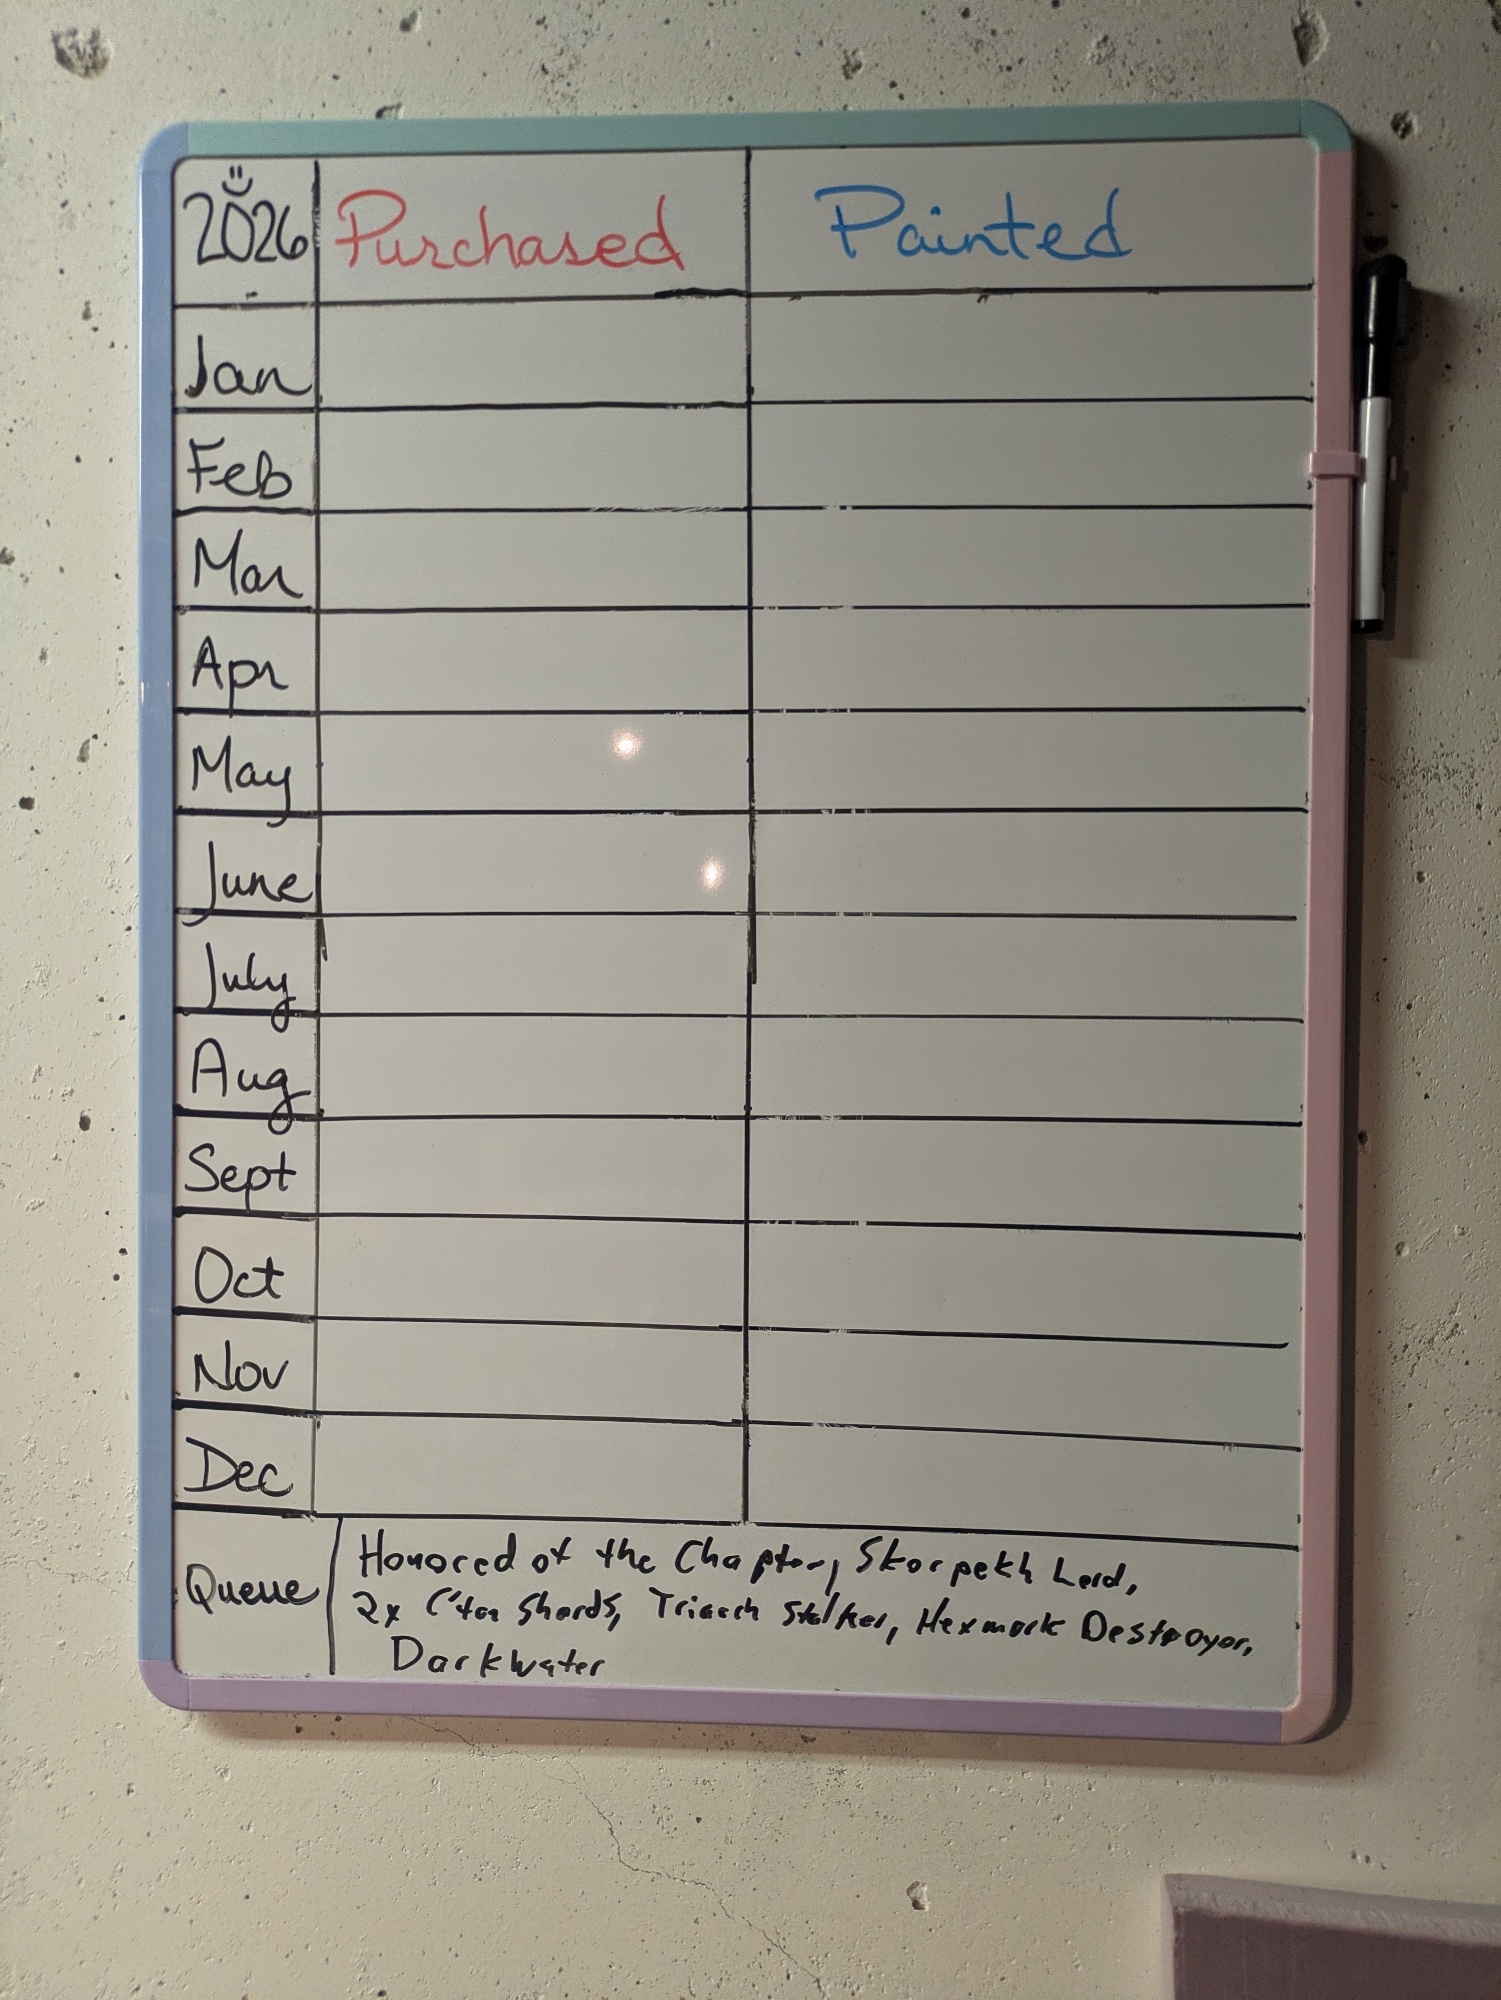 2026 Purchased Painted
Jan
Feb
Mar
Apr
May
June
July
Aug
Sept
Oct
Nov
Dec
Queue
Honored of the Chapter, Skorpekh Lord,
2x C'tan Shards, Triarch Stalker, Hexmark Destroyer,
Darkwater